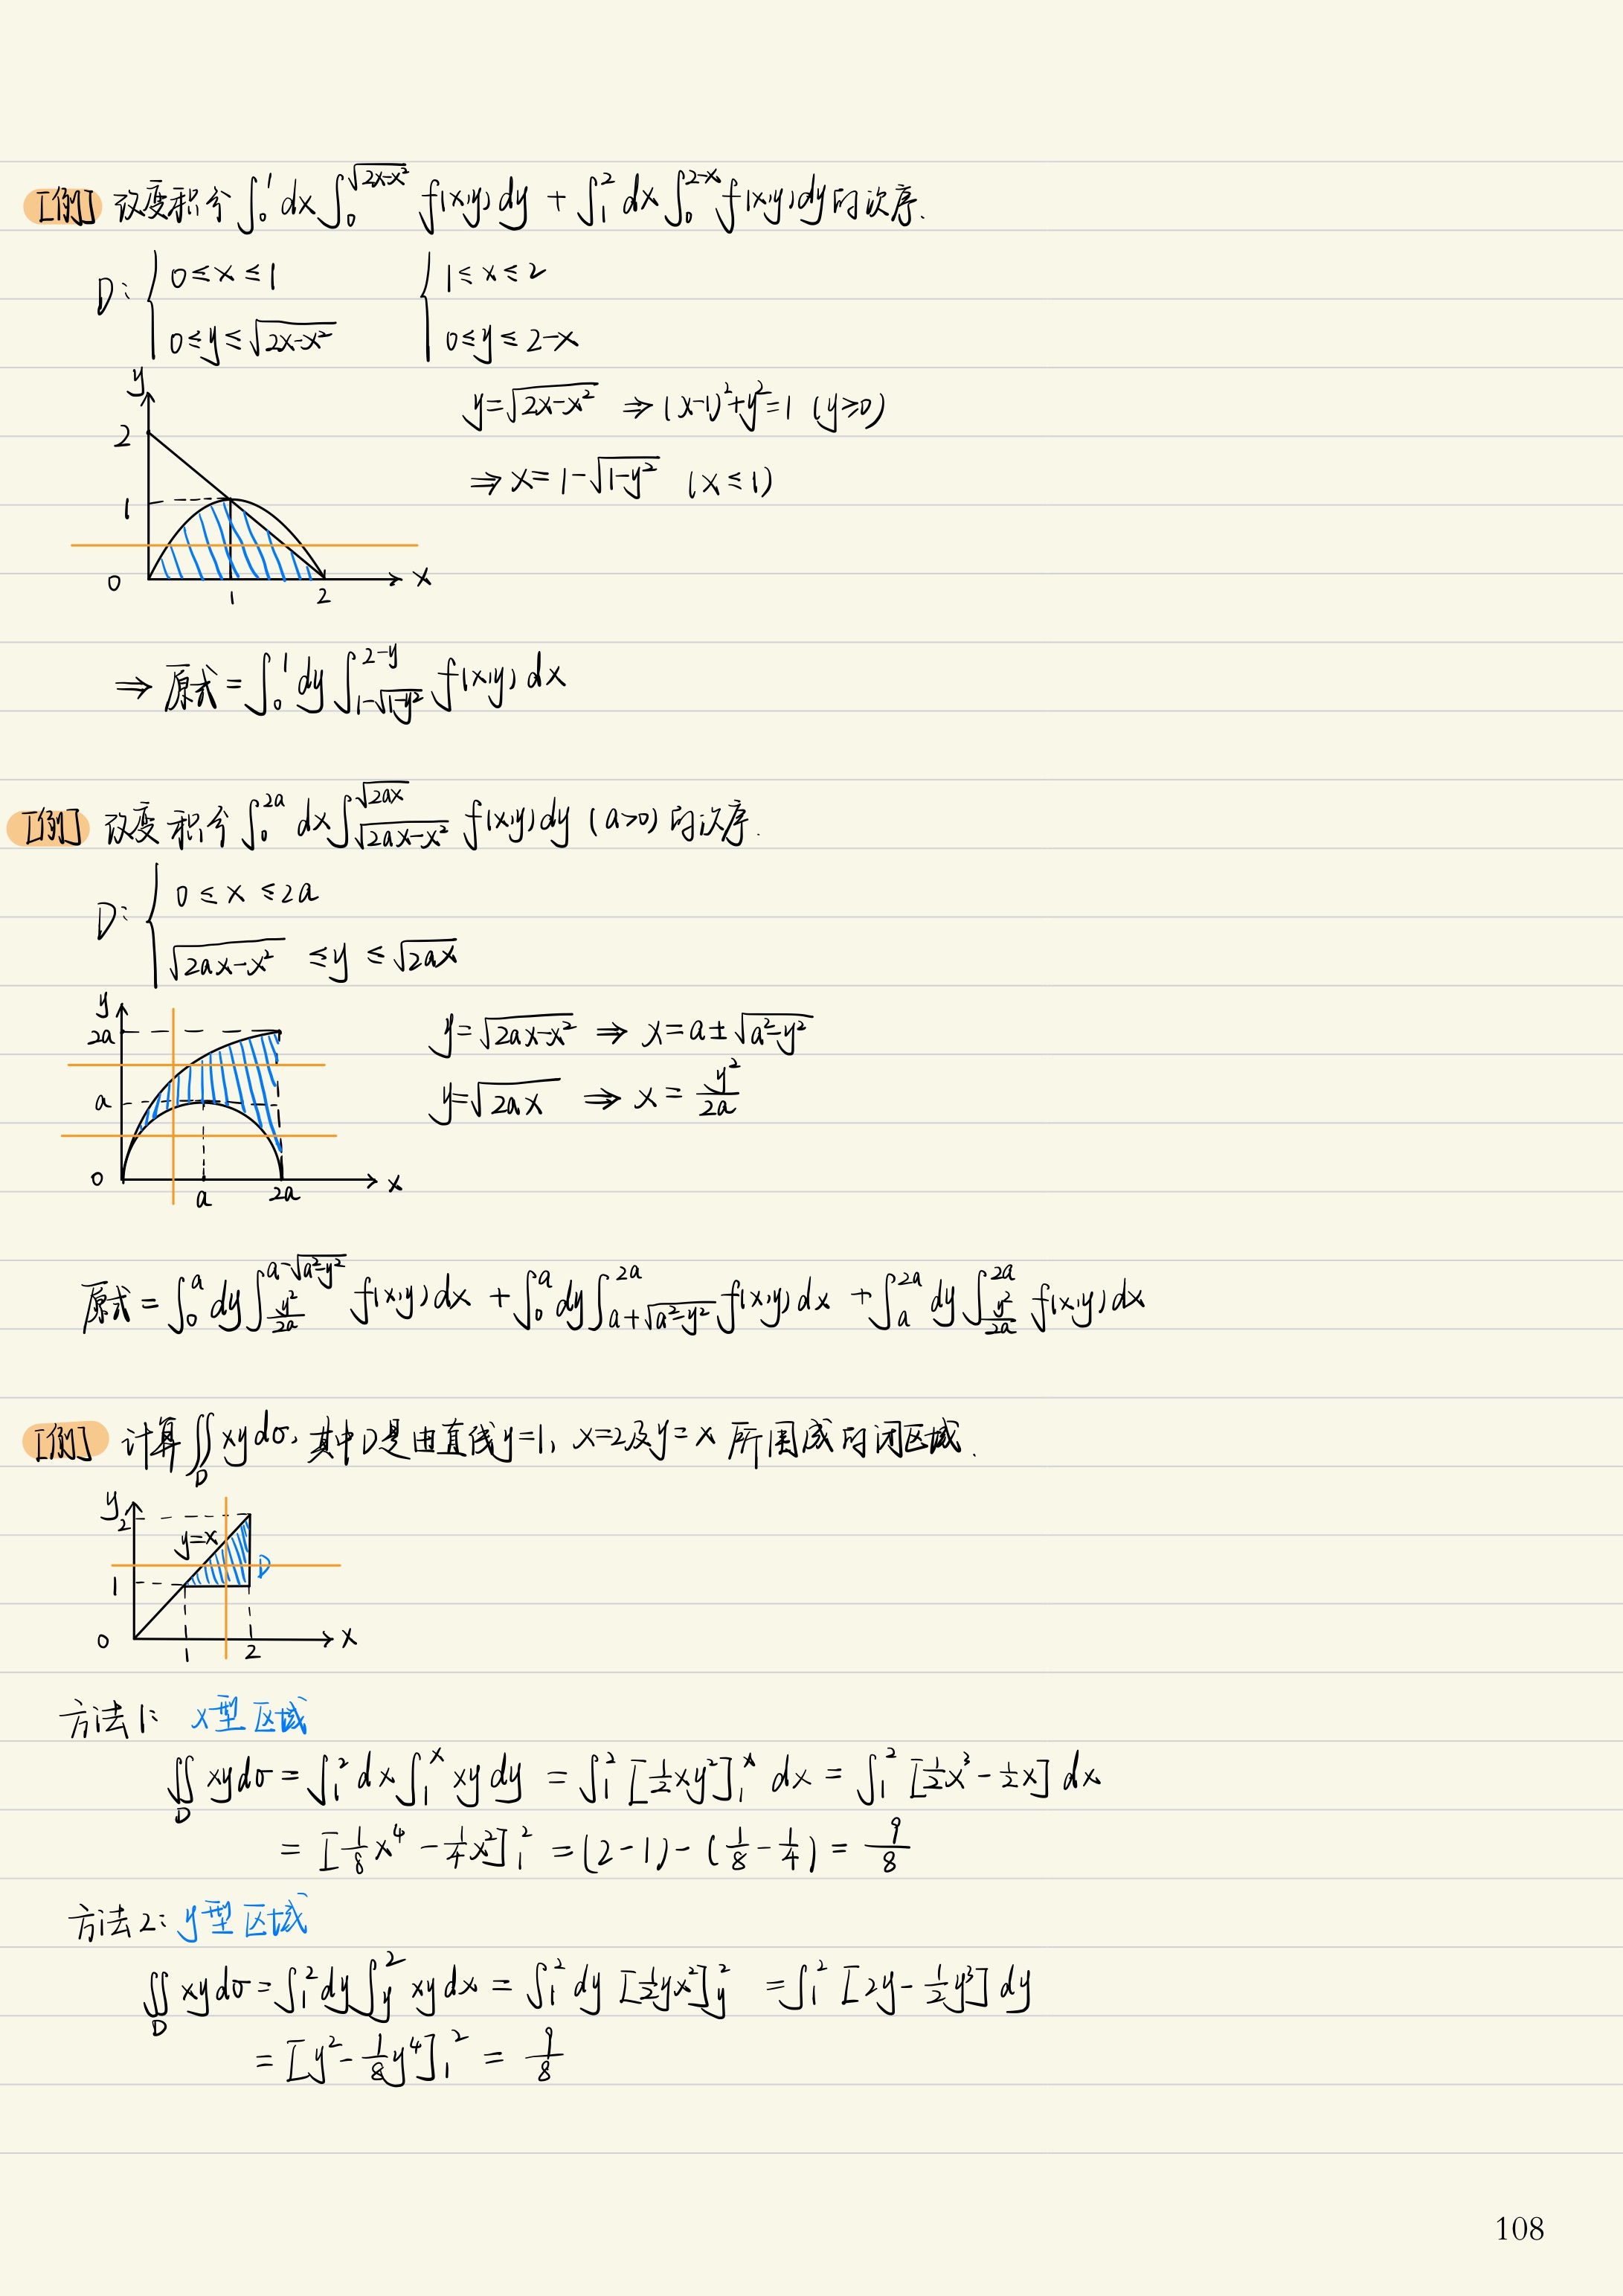 [例] 改变积分 ∫₀¹ dx ∫₀^{√(2x-x²)} f(x,y) dy + ∫₁² dx ∫₀^{2-x} f(x,y) dy 的次序.
D: { 0≤x≤1 { 1≤x≤2
0≤y≤√(2x-x²) 0≤y≤2-x
y
2
1
0 1 2 x
y=√(2x-x²) ⇒ (x-1)²+y²=1 (y≥0)
⇒ x=1-√(1-y²) (x≤1)
⇒ 原式 = ∫₀¹ dy ∫_{1-√(1-y²)}^{2-y} f(x,y) dx
[例] 改变积分 ∫₀^{2a} dx ∫_{√(2ax-x²)}^{√(2ax)} f(x,y) dy (a>0) 的次序.
D: { 0≤x≤2a
√(2ax-x²) ≤y≤ √(2ax)
y
2a
a
0 a 2a x
y=√(2ax-x²) ⇒ x=a±√(a²-y²)
y=√(2ax) ⇒ x=y²/2a
原式 = ∫₀^a dy ∫_{y²/2a}^{a-√(a²-y²)} f(x,y) dx + ∫₀^a dy ∫_{a+√(a²-y²)}^{2a} f(x,y) dx + ∫_a^{2a} dy ∫_{y²/2a}^{2a} f(x,y) dx
[例] 计算 ∬_D xydσ, 其中D是由直线y=1, x=2及y=x 所围成的闭区域.
y
2
y=x
D
1
0 1 2 x
方法1: x型区域
∬_D xydσ = ∫₁² dx ∫₁^x xy dy = ∫₁² [½xy²]₁^x dx = ∫₁² [½x³-½x] dx
= [⅛x⁴-¼x²]₁² = (2-1)-(⅛-¼) = 9/8
方法2: y型区域
∬_D xydσ = ∫₁² dy ∫_y² xy dx = ∫₁² dy [½yx²]_y² = ∫₁² [2y-½y³] dy
= [y²-⅛y⁴]₁² = 9/8
108